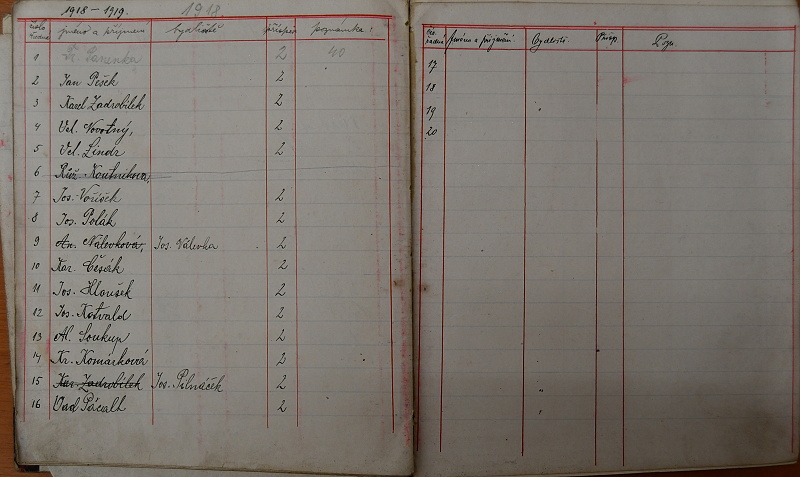 1918-1919. 1918
číslo řadné jméno a příjmení bydliště příspěv poznámka:
1 Sazenka 2 40
2 Jan Pešek 2
3 Karel Zadrobílek 2
4 Vel. Novotný, 2
5 Vel. Lindr 2
6 Růž. Koutníková,
7 Jos. Voříšek 2
8 Jos. Polák 2
9 An. Nálevková, Jos. Válevka 2
10 Kar. Češák 2
11 Jos. Hloušek 2
12 Jos. Kotvald 2
13 Al. Soukup 2
14 Kr. Komárková 2
15 Kar. Zadrobílek Jos. Polnáček 2
16 Vad Pácalt 2
řadné Jméno a příjmení. bydliště. Přísp. Pozn.
17
18
19
20